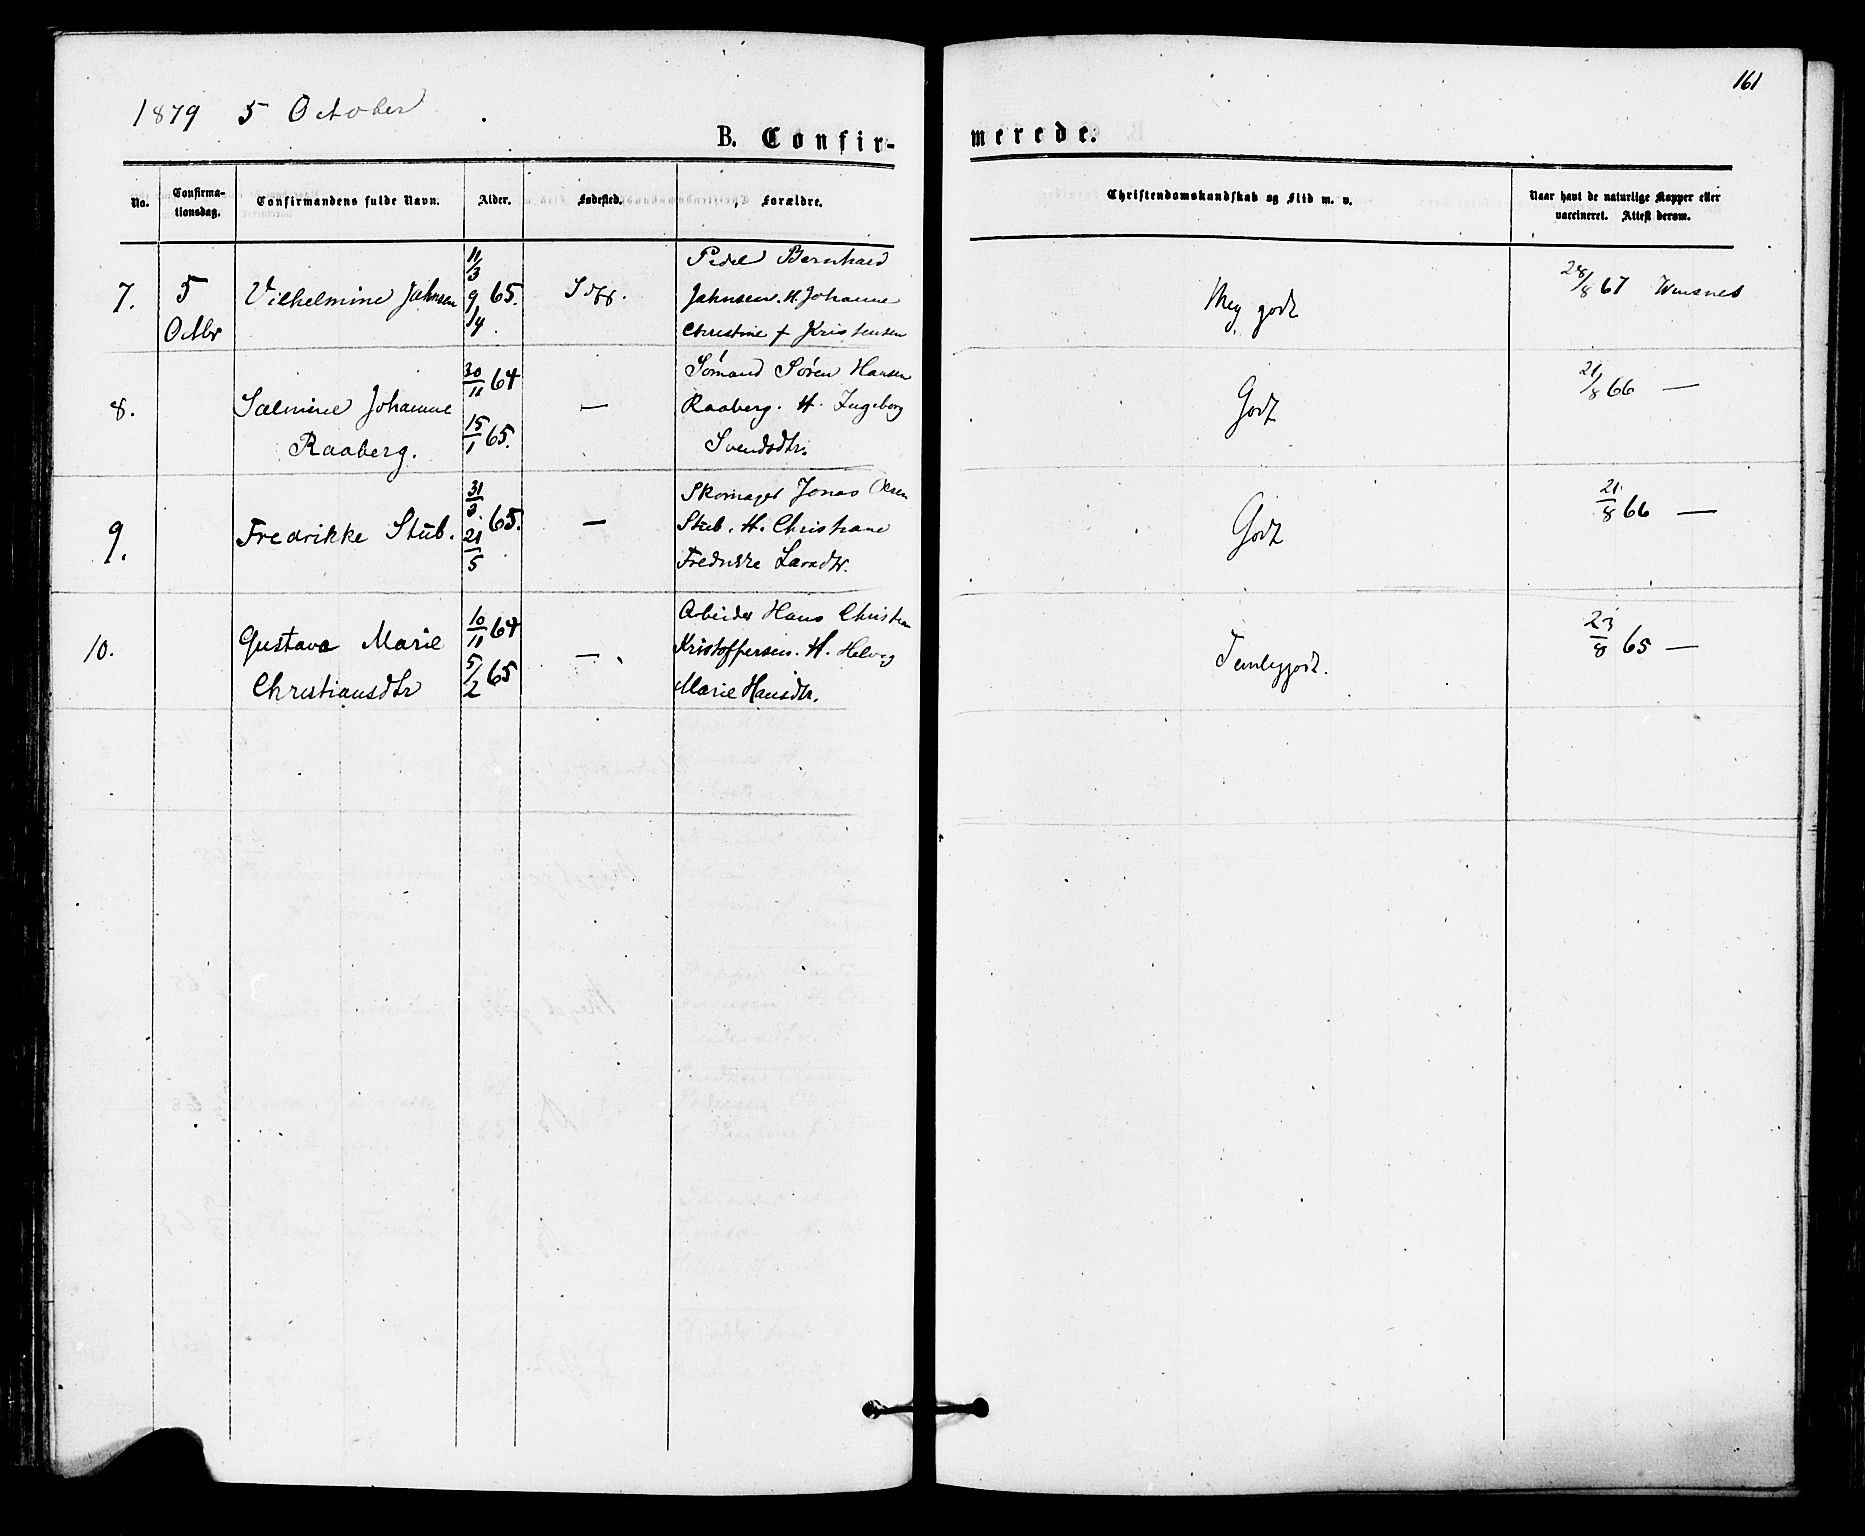 161
1879 5 October
B. Confir- merede.
No. Confirma-tionsdag. Confirmandens fulde Navn. Alder. Fødested. Forældre. Christendomskundskab og Flid m. v. Naar havt de naturlige Kopper eller vaccineret. Attest derom.
11/3 Bernhard
7. 5 Vilhelmine Jahnsen 9 65. Jahnsen. H. Johanne Meg godt 28/8 67
Octbr 14. Christine f Kristensen
30/11 64 Sømand Søren Hansen
8. Johanne — Raaberg. H. Ingeborg Godt 21/8 66 —
Raaberg. 15/1 65. Svendsdtr.
31/3 Skomager Jonas Olsen
9. Fredrikke Stub. 65. — Stub. H. Christiane Godt 21/8 66 —
21/5 Fredrikke Larsdtr.
10/11 64 Arbeider Hans Christian
10. Gustava Marie — Kristoffersen. H. Helvig Temlig godt. 23/8 65 —
Christiansdtr 5/2 65 Marie Hansdtr.